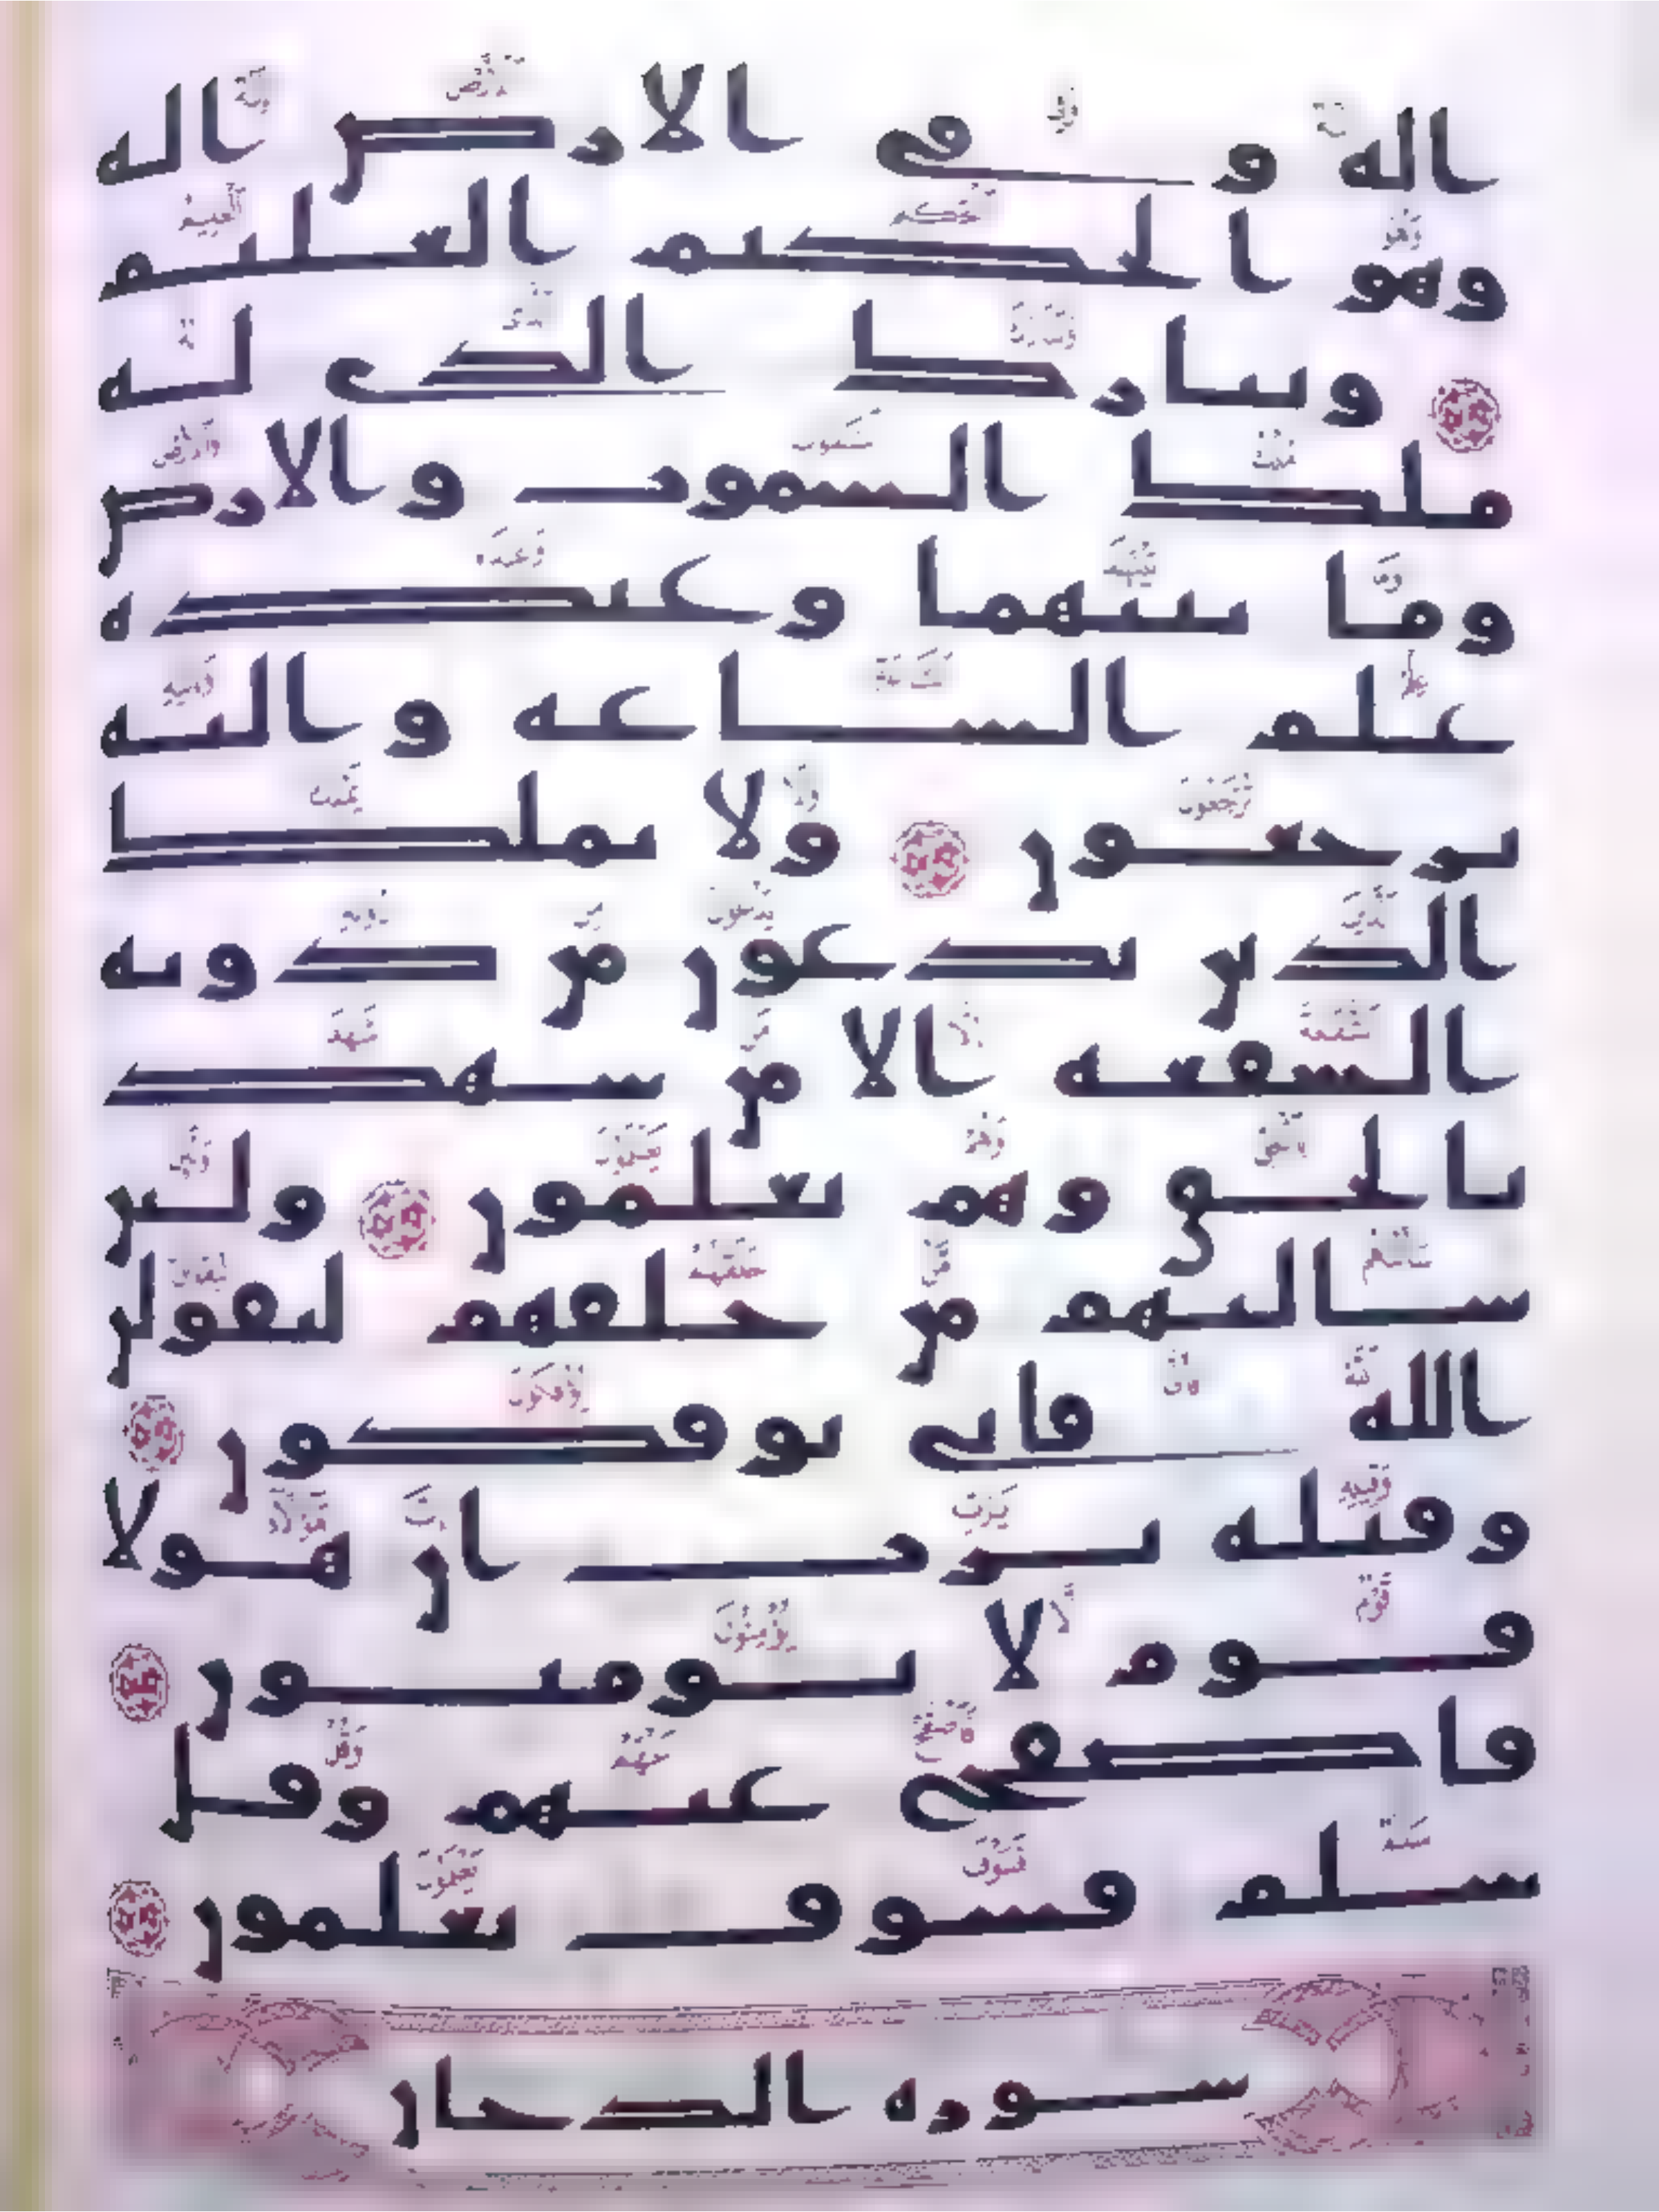 اله و في الارض اله
وهو الحكيم العليم
وتبارك الذي له
ملك السموت والارض
وما بينهما وعنده
علم الساعه واليه
ترجعون ولا يملك
الذين يدعون من دونه
الشفعه الا من شهد
بالحق وهم يعلمون ولئن
سالتهم من خلقهم ليقولن
الله فاني يوفكون
وقيله يرب ان هولا
قوم لا يومنون
فاصفح عنهم وقل
سلم فسوف يعلمون
سوره الدخان